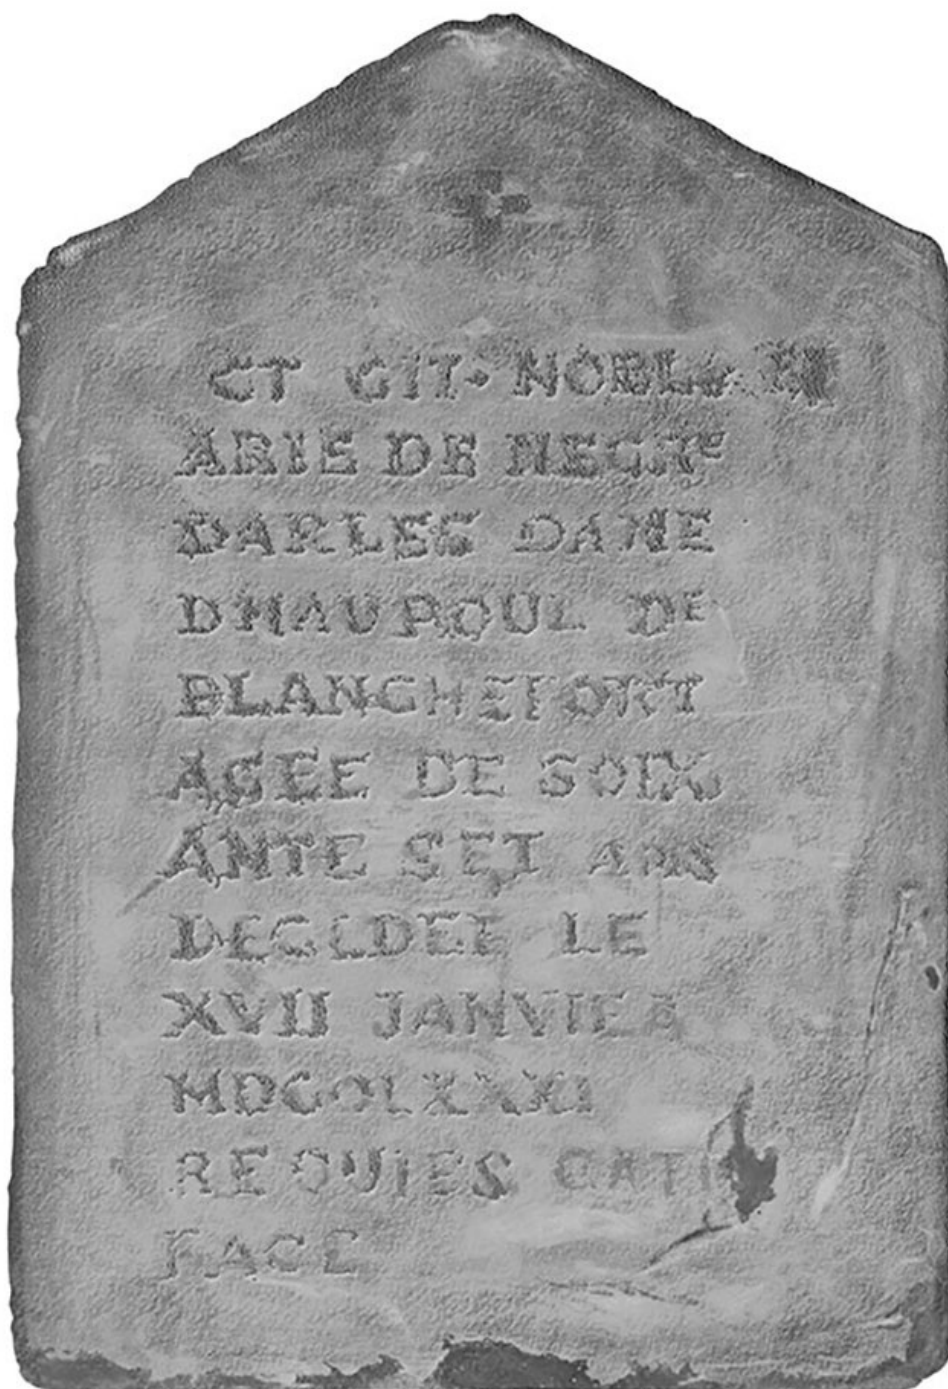 CT GIT· NOBLe M
ARIE DE NEGRe
DARLES DAME
DHAUPOUL De
BLANCHEFORT
AGEE DE SOIX
ANTE SET ANS
DECEDEE LE
XVII JANVIER
MDCOLXXXI
REQUIES CATI
PACE